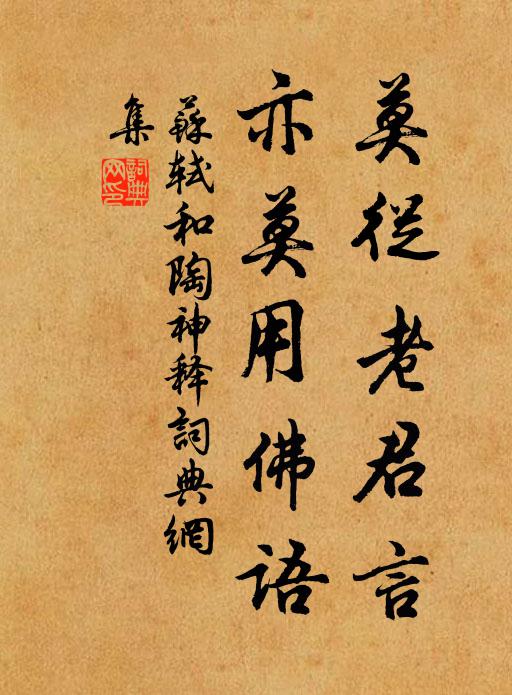 莫從老君言
亦莫用佛語
蘇軾和陶神释詞典網
集
詞典网印